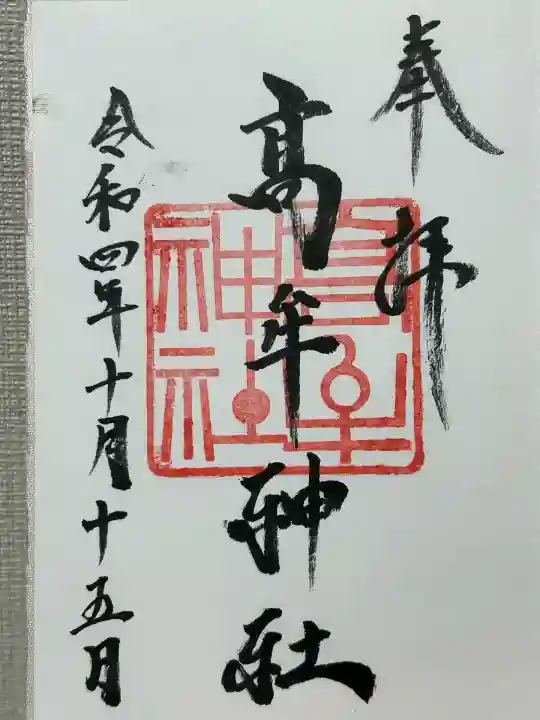 奉拝
髙牟神社
髙牟神社
令和四年十月十五日